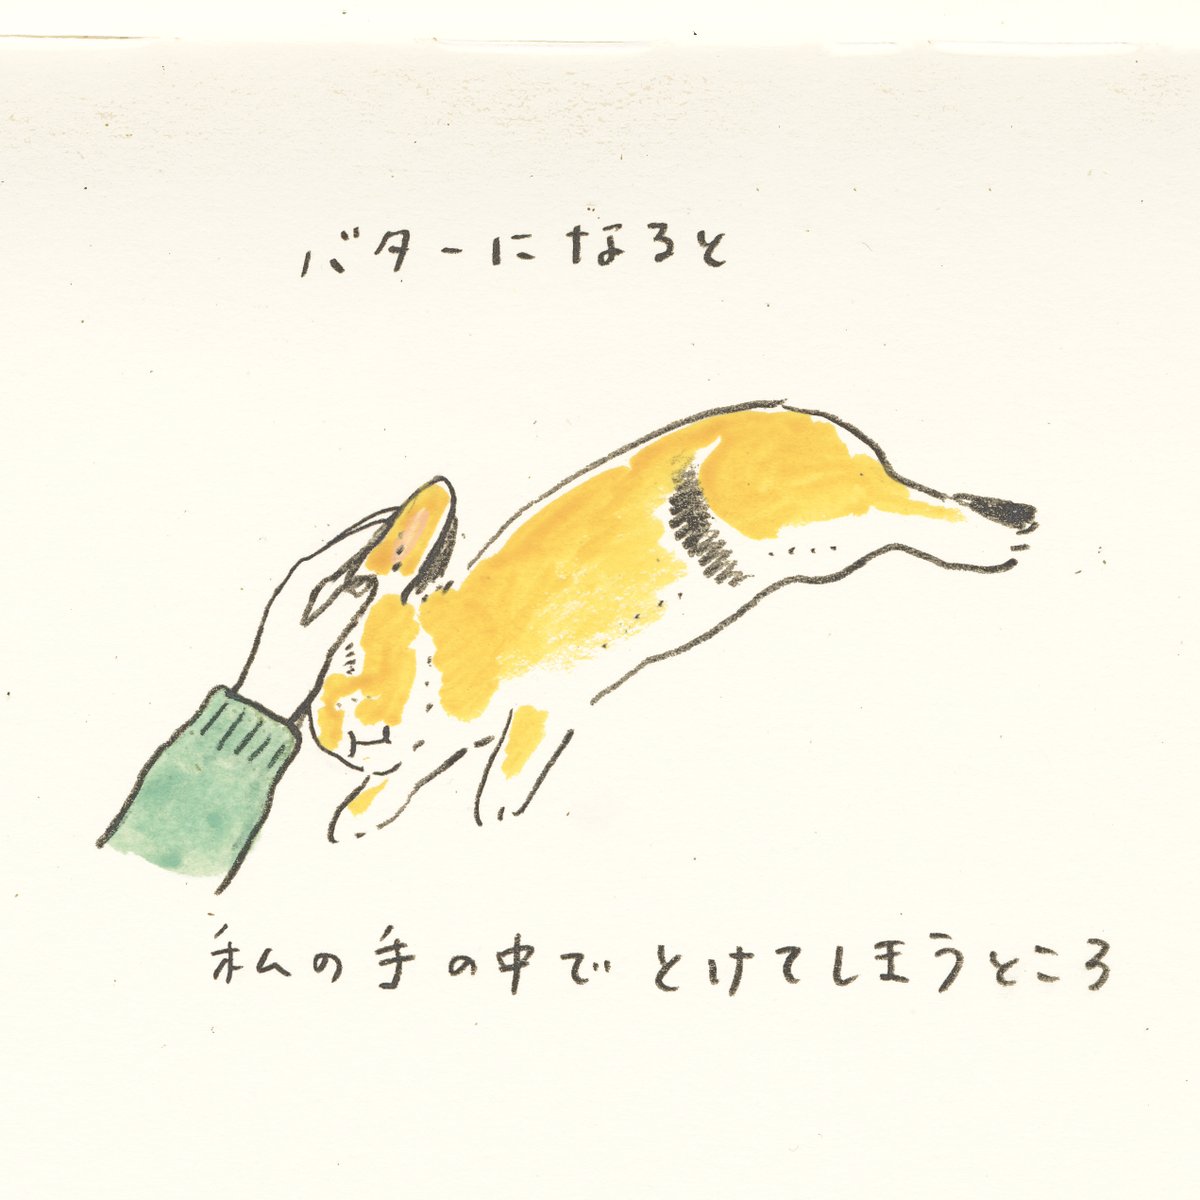 バターになると
私の手の中で とけてしまうところ